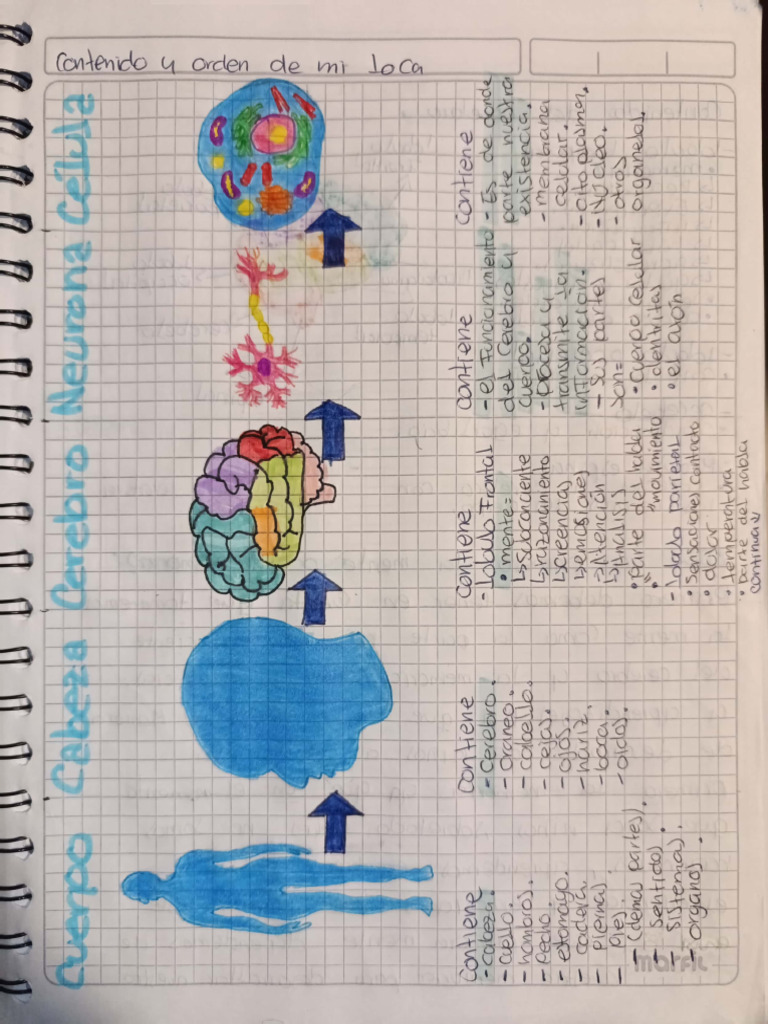 Contenido y orden de mi loca
Cuerpo Cabeza Cerebro Neurona Célula
Contiene
- cabeza.
- cuello.
- hombros.
- pecho.
- estomago.
- cadera.
- piernas
- pies.
- (demas partes).
- sentidos.
- sistemas.
- organos.
Contiene
- Cerebro.
- Craneo.
- cabello.
- cejas.
- ojos.
- nariz.
- boca.
- oidos.
Contiene
- Lobulo Frontal
• mente=
↳ subconciente
↳ razonamiento
↳ creencias
↳ emosiones
↳ Atención
↳ Analisis
• Parte del habla
• " " movimiento
- lobulo parietal
• Sensaciones contacto
• dolor
• temperatura
• parte del habla
continua
Contiene
- el Funcionamiento
del Cerebro y
cuerpo.
- procesa y
transmite la
información.
- Sus partes
son=
• Cuerpo celular
• dentritas
• el axón
Contiene
- Es de donde
parte nuestra
existencia.
- membrana
celular.
- citoplasma.
- Núcleo.
- otros
organelos.
marfil